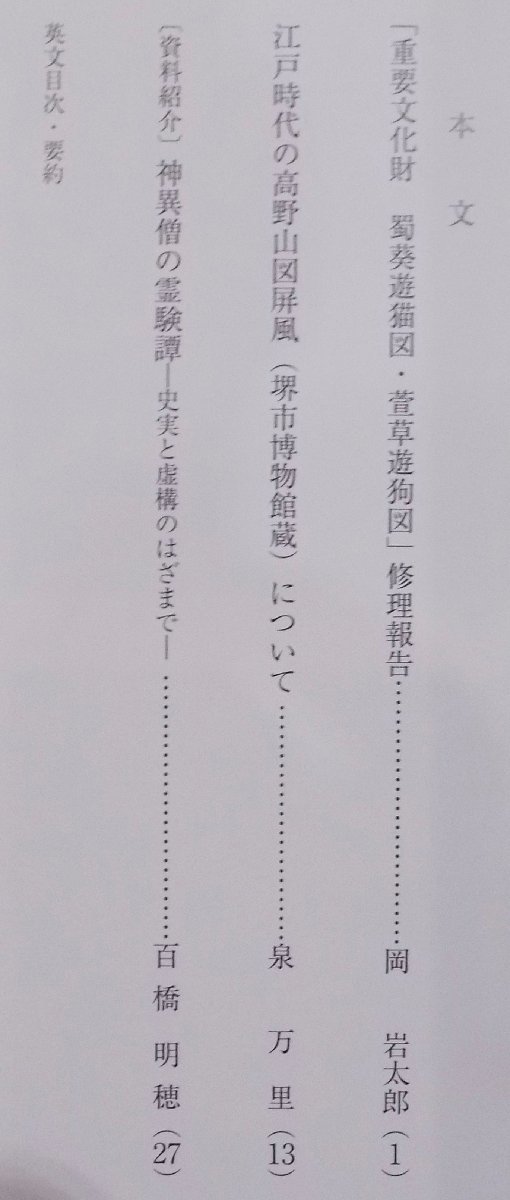 本文
「重要文化財　蜀葵遊猫図・萱草遊狗図」修理報告……………………岡　岩太郎（1）
江戸時代の高野山図屏風（堺市博物館蔵）について……………………泉　万里（13）
〔資料紹介〕神異僧の霊験譚―史実と虚構のはざまで―……………………百橋　明穂（27）
英文目次・要約